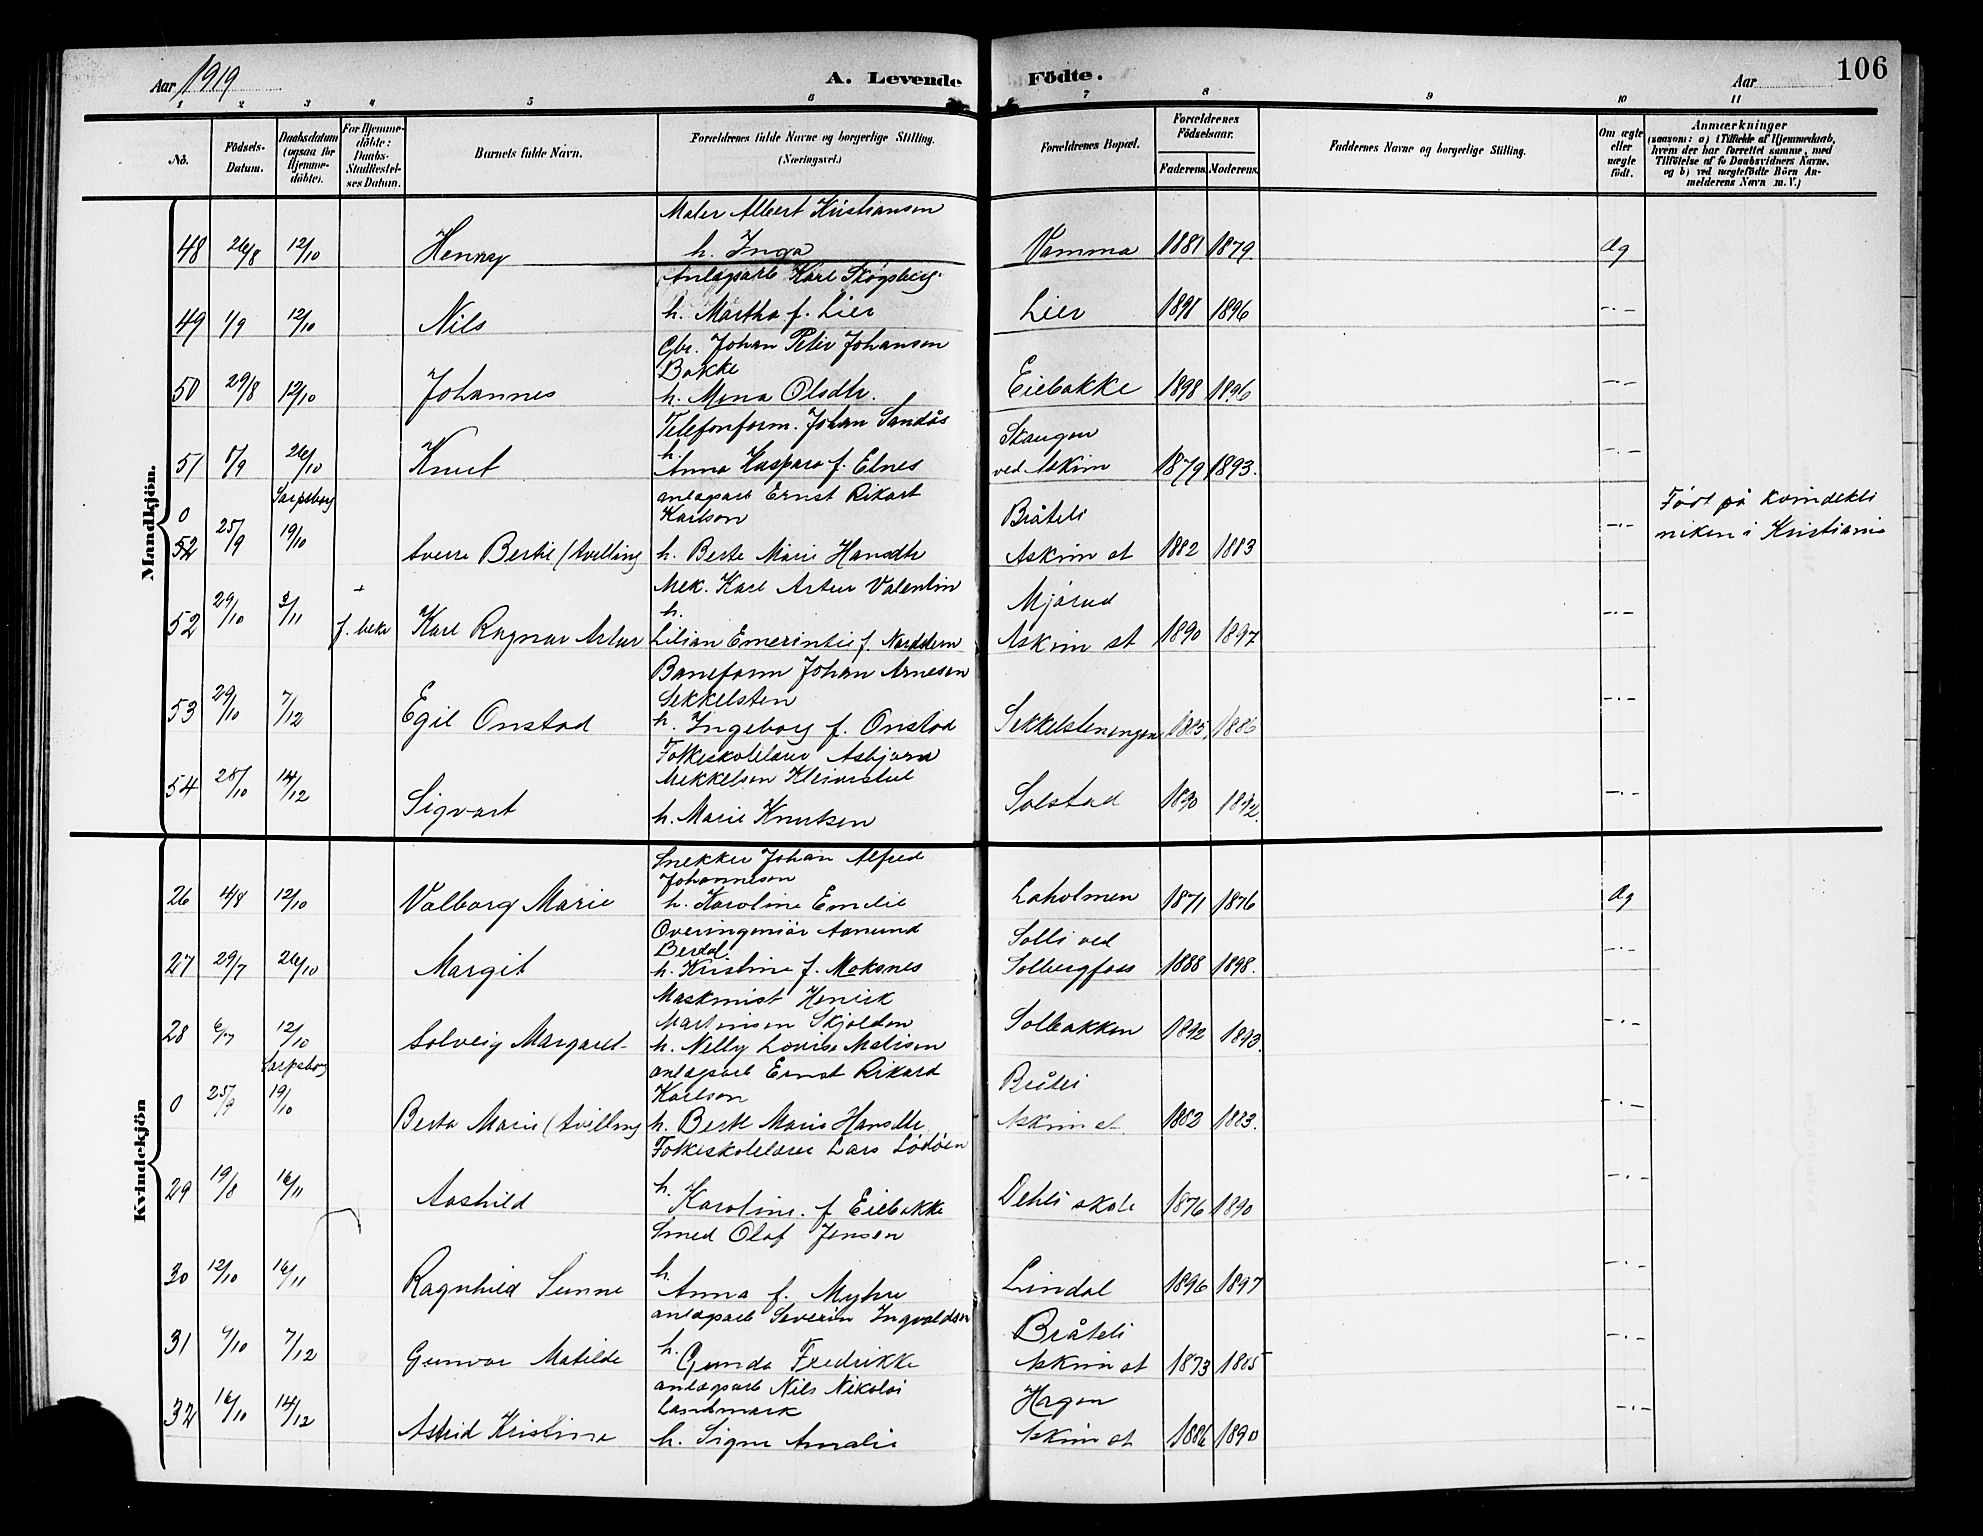 Aar 1919
A. Levende Födte.
Aar
106
1 2 3 4 5 6 7 8 9 10 11
No.
Födsels-Datum.
Daabsdatum (ogsaa for Hjemme-döbte).
For Hjemme-döbte: Daabs-Stadfæstel-ses Datum.
Barnets fulde Navn.
Forældrenes fulde Navne og borgerlige Stilling. (Næringsvei.)
Forældrenes Bopæl.
Forældrenes Födselsaar.
Faderens. Moderens.
Faddernes Navne og borgerlige Stilling.
Om ægte eller uægte født.
Anmærkninger (saasom: a) i Tilfælde af Hjemmedaab, hvem der har forrettet samme, med Tilföielse af to Daabsvidners Navne, og b) ved uægtefödte Börn An-melderens Navn m. V.)
Mandkjön.
Maler Albert Kristiansen
48 26/8 12/10 Henry h. Inga Vamma 1881 1879 Æg
Anlægsarb Karl Skogsberg
49 1/9 12/10 Nils h. Martha f. Lier Lier 1891 1896 -.-
Gbr. Johan Peter Johansen
Bakke
50 29/8 12/10 Johannes h. Mina Olsdtr. Eiebakke 1898 1896 -.-
Telefonform. Johan Sandås
51 1/9 26/10 Knut h. Anna Kaspara f. Elnes Skaugen ved Askim 1879 1893. -.-
Sarpsborg
anlægsarb Ernst Rikart
Karlson
0 52 25/9 19/10 Sverre Bertil (tvilling) h. Berte Marie Hansdtr Bråteli Askim st 1882 1883 -.- Født på kvindekli
niken i Kristiania
Mek. Karl Artur Valentin
52 29/10 3/11 f. bekr Karl Ragnar Artur h. Lilian Emerintie f. Mjørud Askim st 1890 1897 -.-
Baneform Johan Arnesen
Sekkelsten
53 29/10 7/12 Egil Onstad h. Ingeborg f. Onstad 1885 1886 -.-
Folkeskolelærer Asbjørn
Mikkelsen
54 28/10 14/12 Sigvart h. Marie Knutsen Solstad 1890 1892. -.-
Kvindekjön
Snekker Johan Alfred
Johannesen
26 4/8 12/10 Valborg Marie h. Karoline Emilie Laholmen 1871 1876 Æg
Overingeniør Aamund
Berdal
27 29/7 26/10 Margit h. Kristine f. Moksnes Solli ved Solbergfoss 1888 1898. -.-
Maskinist Henrik
Martinsen Skjolden
28 6/7 12/10 Solveig Margaret h. Nelly Lovise Solbakken 1892 1893. -.-
Sarpsborg
anlægsarb Ernst Rikard
Karlson
0 25/9 19/10 Berta Marie (tvilling) h. Berte Marie Hansdtr Bråteli Askim st 1882 1883. -.-
Folkeskolelærer Lars Lødøen
29 19/8 16/11 Aashild h. Karoline f Eiebakke Dehli skole 1876 1890 -.-
Smed Olaf Jensen
30 12/10 16/11 Ragnhild Sunne h. Anna f. Myhre Lindal 1896 1897 -.-
anlægsarb Severin Ingvaldsen
31 4/10 7/12 Gunvor Matilde h. Gunda Fredrikke Bråteli Askim st 1873 1885 -.-
anlægsarb Nils Nikolai
Landmark
32 16/10 14/12 Astrid Kristine h. Signe Amalie Hagen Askim st 1886 1890 -.-